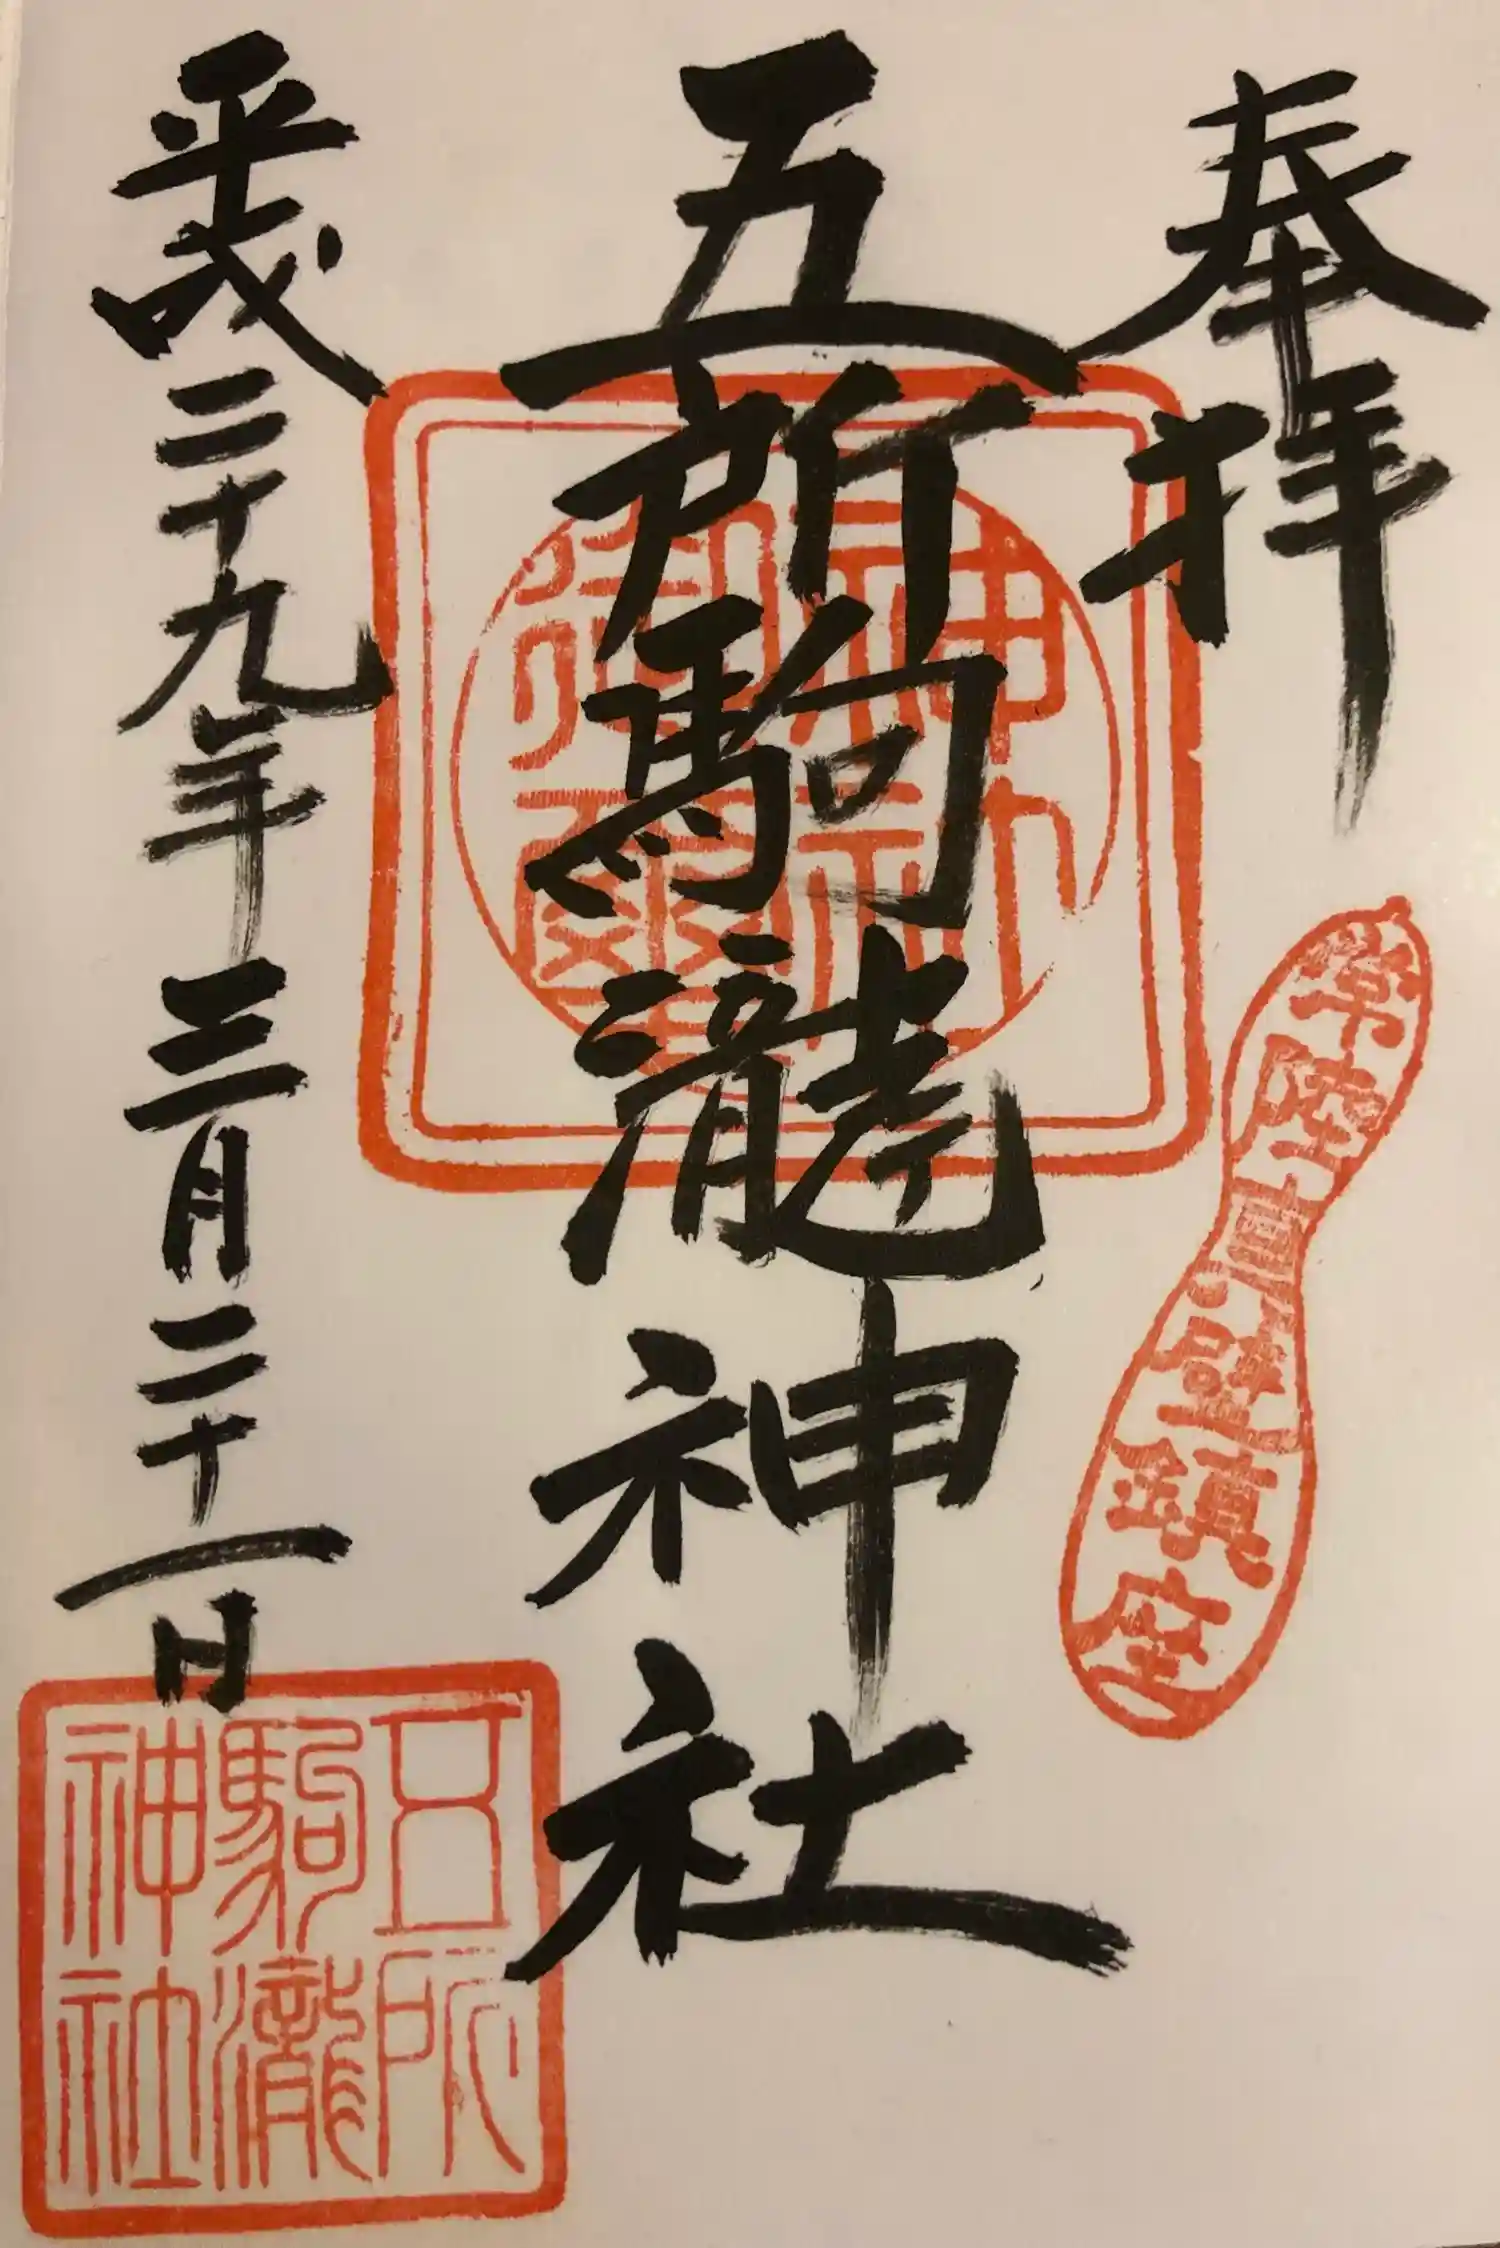 奉拝
常陸真壁鎮座
五所駒瀧神社
神社御璽
平成二十九年三月二十一日
五所
駒瀧
神社